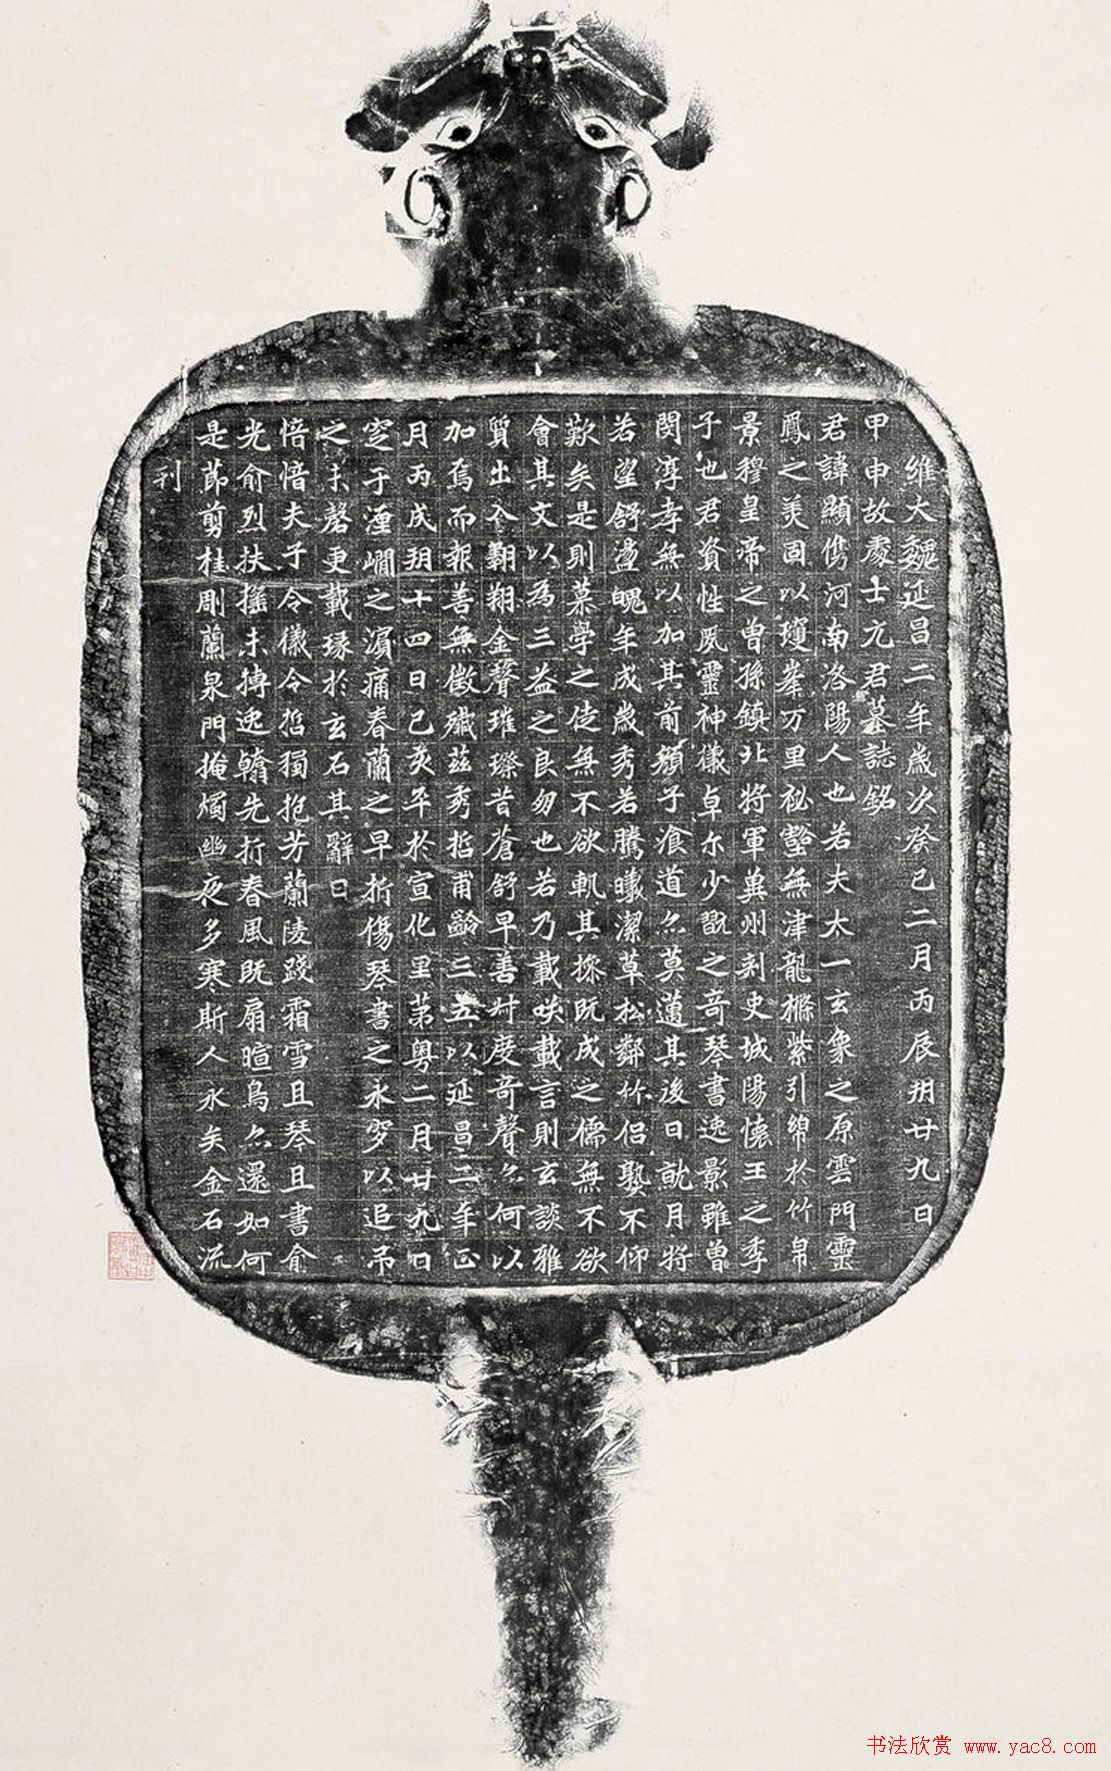 維大魏延昌二年歲次癸巳二月丙辰朔廿九日
甲申故處士元君墓誌銘
君諱顯儁河南洛陽人也若夫太一玄象之原雲門靈
鳳之美固以瓊峯万里祕壑無津龍樹紫引綿於竹帛
景穆皇帝之曾孫鎮北將軍冀州刺史城陽懷王之季
子也君資性夙靈神儀卓尒少翫之奇琴書逸影雖曾
閔淳孝無以加其前顏子飡道亦莫邁其後日就月將
若望舒盪魄年成歲秀若騰曦潔草松鄰竹侶熟不仰
歎矣是則慕學之徒無不欲軌其操既成之儒無不欲
會其文以為三益之良朋也若乃載咲載言則玄談雅
質出入翱翔金聲璀璨昔蒼舒早善叶度奇聲亦何以
加焉而報善無徵殲茲秀哲甫齡三五以延昌二年正
月丙戌朔十四日己亥卒於宣化里第粵二月廿九日
窆于瀍澗之濱痛春蘭之早折傷琴書之永罗以追吊
之未罄更載琭於玄石其辭曰
愔愔夫子令儀令哲獨抱芳蘭陵踐霜雪且琴且書俞
光俞烈扶搖未搏逸翰先折春風既扇暄鳥亦還如何
是節剪桂彫蘭泉門掩燭幽夜多寒斯人永矣金石流
刊
书法欣赏 www.yac8.com